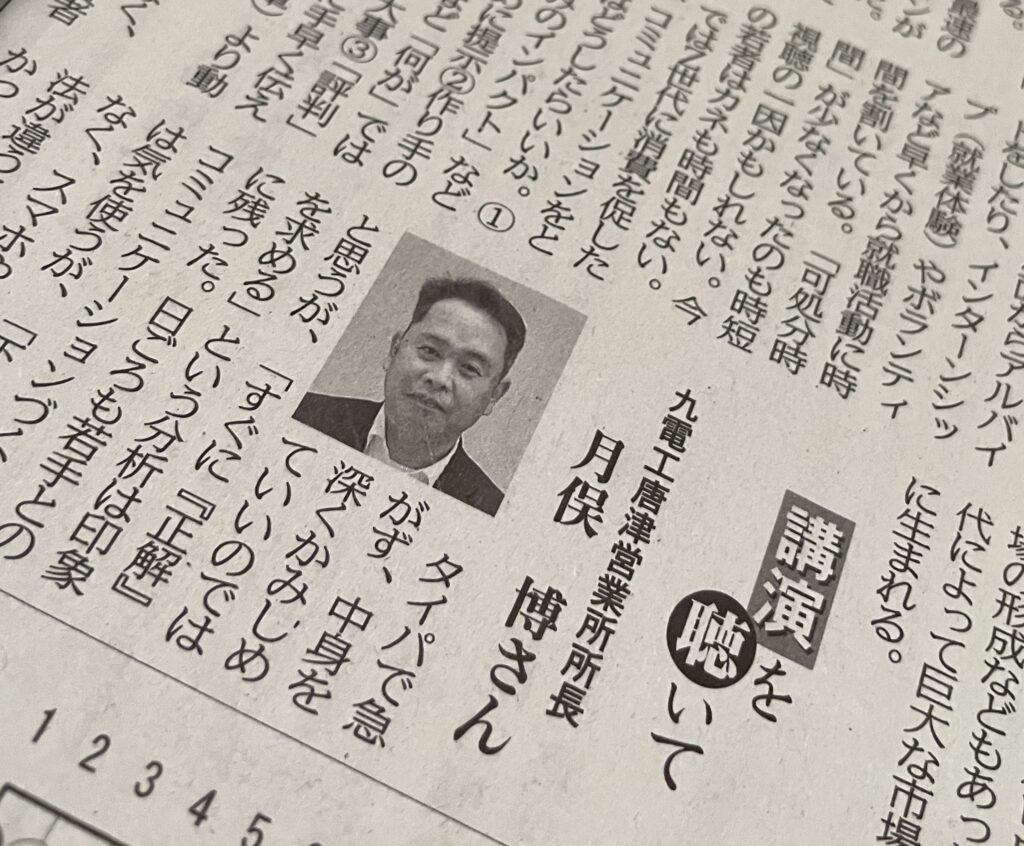 る。
最速の
ンが
た。
らアルバイ
をしたり、インターンシッ
プ（就業体験）やボランティ
アなど早くから就職活動に時
間を割いている。「可処分時
間」が少なくなったのも時短
視聴の一因かもしれない。今
の若者はカネも時間もない。
ではZ世代に消費を促した
コミュニケーションをと
などどうしたらいいか。①
みのインパクト」など
に提示②作り手の
など「何が」では
大事③「評判」
に手早く伝え
より動
場の形成などもあっ
代によって巨大な市場
に生まれる。
講演を
聴いて
九電工唐津営業所所長
月俣 博さん
タイパで急
がず、中身を
深くかみしめ
ていいのでは
と思うが、「すぐに『正解』
を求める」という分析は印象
に残った。日ごろも若手との
コミュニケーションづく
は気を使うが、
なく、スマホや
法が違っ
かっ
1 2 3 4 5